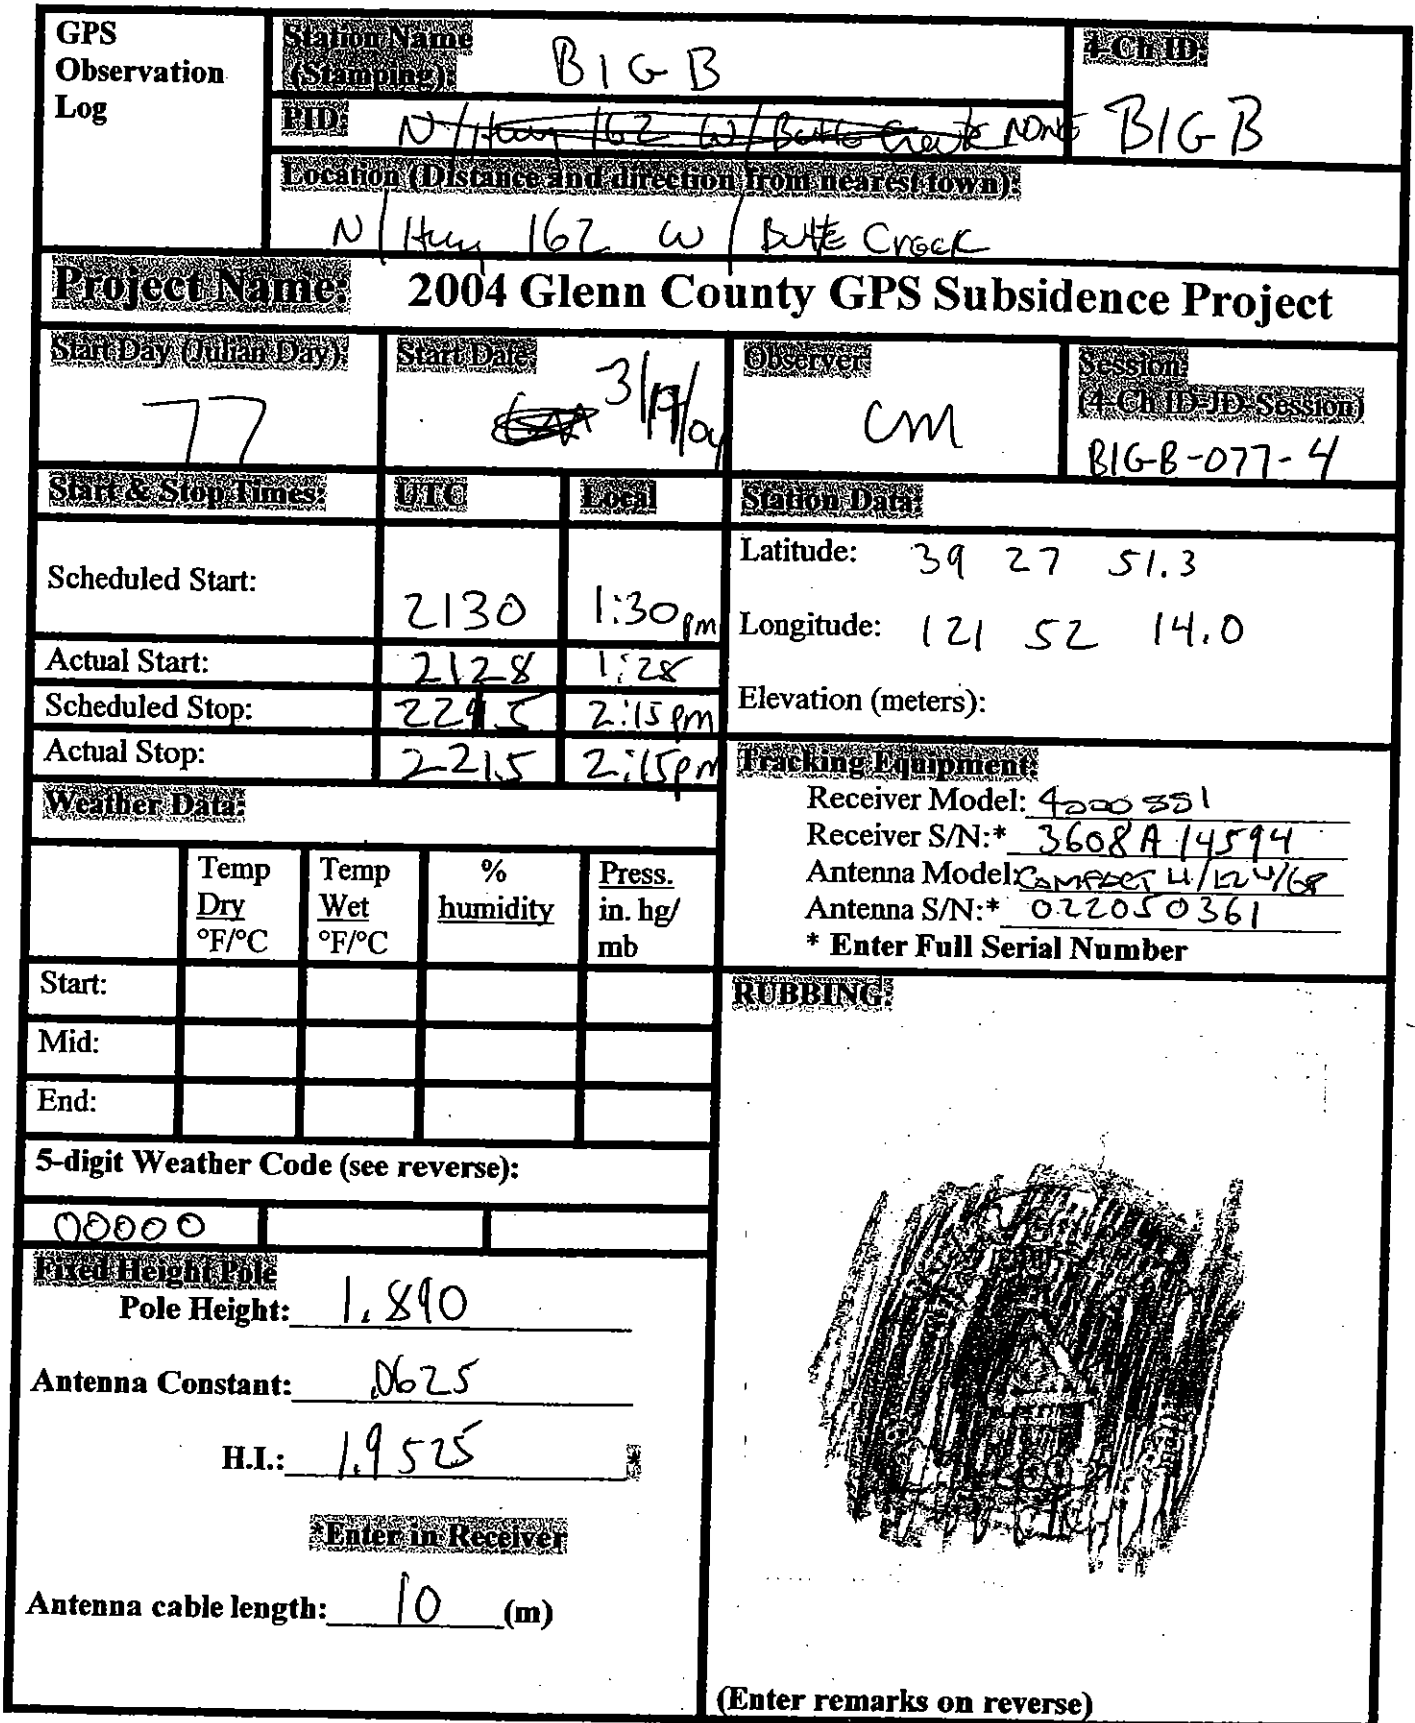 GPS
Observation
Log
Station Name
(Stamping): BIGB
4-Ch ID:
BIGB
PID: N/Hwy 162 W/Butte Creek NONE
Location (Distance and direction from nearest town):
N/Hwy 162 W/Butte Creek
Project Name: 2004 Glenn County GPS Subsidence Project
Start Day (Julian Day)
77
Start Date
3/17/04
Observer:
CM
Session:
(4-Ch ID-JD-Session)
BIGB-077-4
Start & Stop Times: UTC Local
Scheduled Start: 2130 1:30pm
Actual Start: 2128 1:28
Scheduled Stop: 2215 2:15pm
Actual Stop: 2215 2:15pm
Station Data:
Latitude: 39 27 51.3
Longitude: 121 52 14.0
Elevation (meters):
Tracking Equipment:
Receiver Model: 4000 SSI
Receiver S/N:* 3608A14594
Antenna Model: COMPACT
Antenna S/N:* 022050361
* Enter Full Serial Number
Weather Data:
Temp Dry °F/°C
Temp Wet °F/°C
% humidity
Press. in. hg/ mb
Start:
Mid:
End:
5-digit Weather Code (see reverse):
00000
Fixed Height Pole
Pole Height: 1.890
Antenna Constant: .0625
H.I.: 1.9525 *
*Enter in Receiver
Antenna cable length: 10 (m)
RUBBING:
(Enter remarks on reverse)